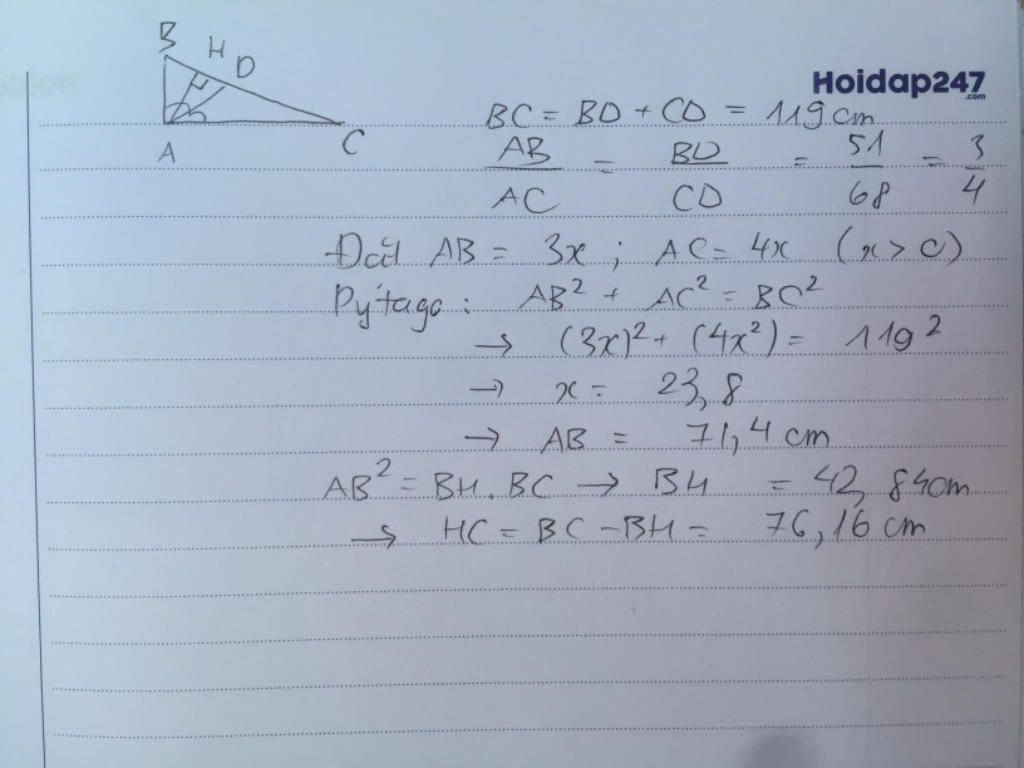 B H D
A C
Hoidap247
.com
BC = BD + CD = 119 cm
AB/AC = BD/CD = 51/68 = 3/4
Đặt AB = 3x ; AC = 4x (x > 0)
Pytago : AB² + AC² = BC²
→ (3x)² + (4x²) = 119²
→ x = 23,8
→ AB = 71,4 cm
AB² = BH . BC → BH = 42,84cm
→ HC = BC - BH = 76,16 cm